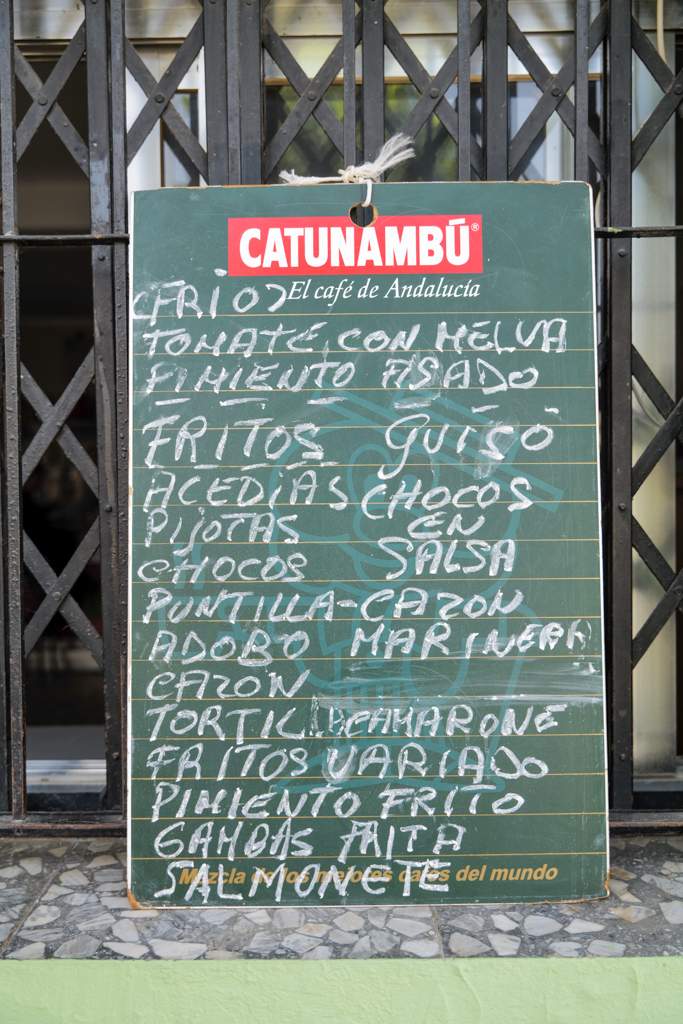 CATUNAMBÚ®
El café de Andalucía
(FRIO)
TOMATE CON MELVA
PIMIENTO ASADO
FRITOS GUISO
ACEDIAS CHOCOS
PIJOTAS EN
CHOCOS SALSA
PUNTILLA-CAZON
ADOBO MARINERA
CAZON
TORTILLACAMARONE
FRITOS VARIADO
PIMIENTO FRITO
GAMBAS FRITA
SALMONETE
Mezcla de los mejores cafés del mundo